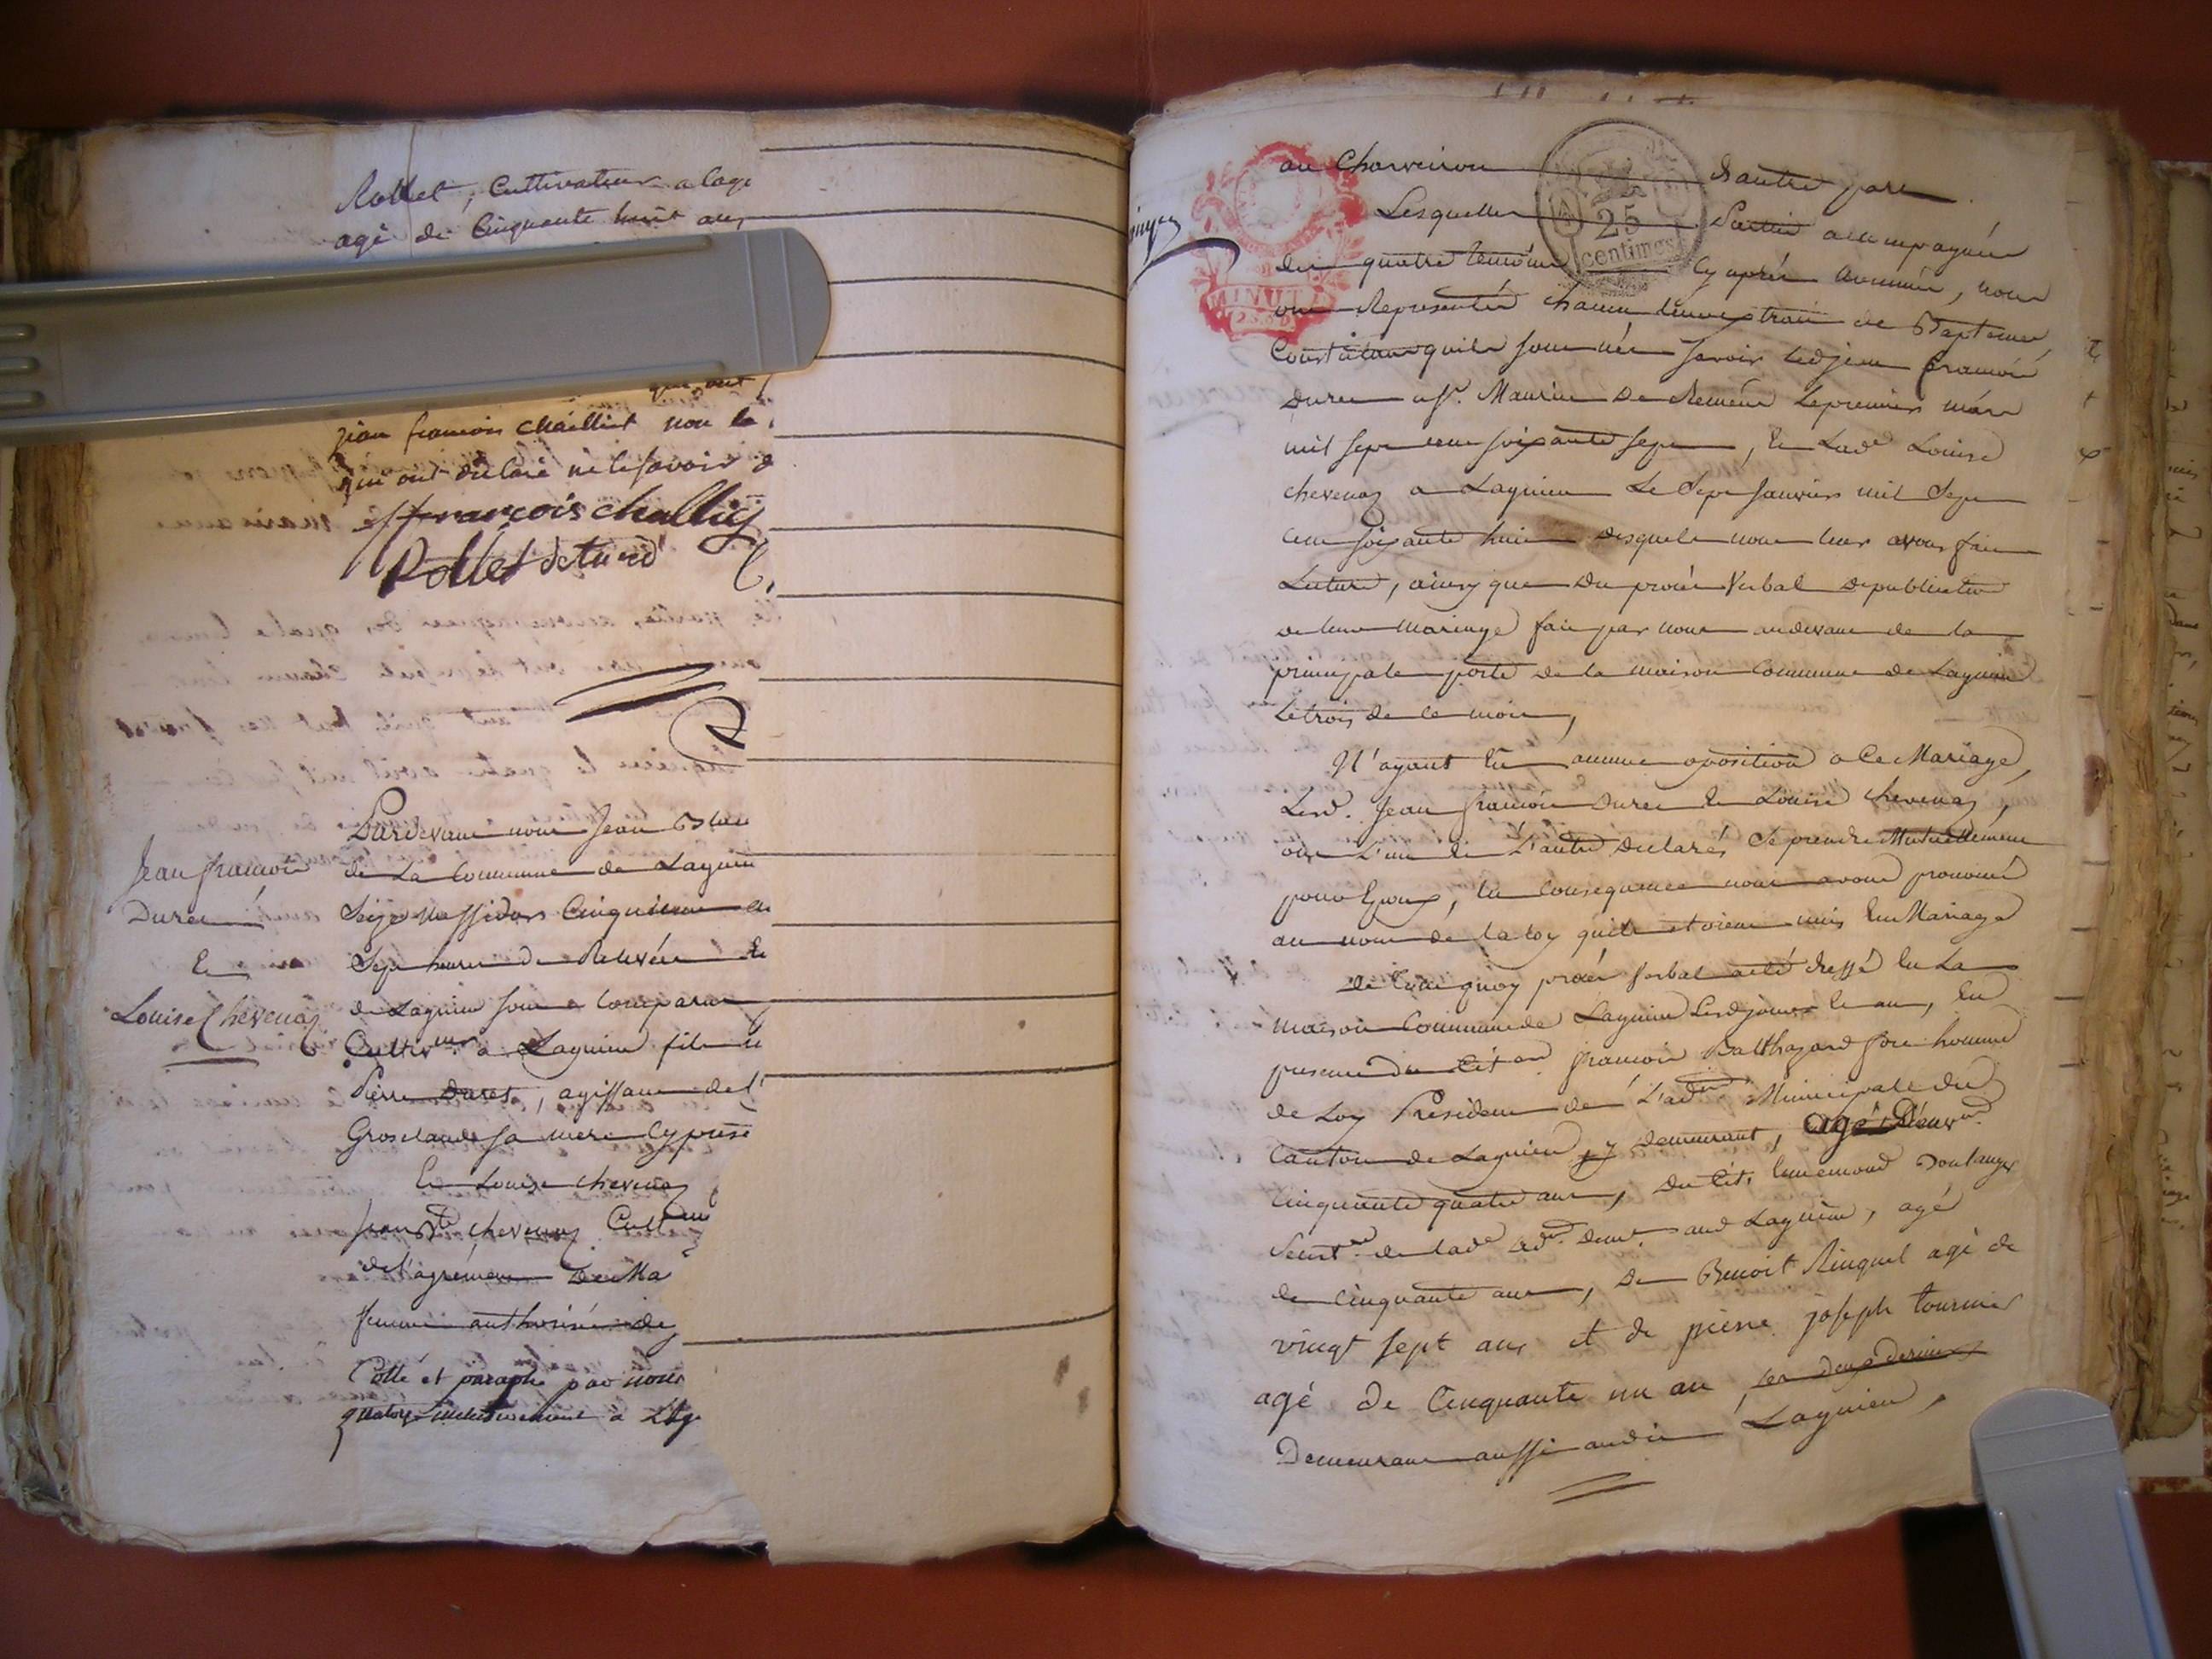 Rollet, Cultivateur a lage
agé de Cinquante huit ans
qui ont
jean francois challiet non le
qui ont déclaré ne le savoir d
francois challiey
Rollet
Jean francois
Duret
Et
Louise Chevenaz
Pardevant nous Jean
de La Commune de Lagnieu
Seize Messidors Cinquieme
Sept heures de Relevée
de Lagnieu sont comparus
Cultivateur a Lagnieu fils
Pierre Duret, agissant de l'
Groselande sa mere Cy prése
Et Louise chevenaz
Jean Bte chevenaz Cult
de l'agrément De Ma
femme authorisée de
Cotté et paraphé par nous
au Charveiron d'autre part
25
centimes
MINUTE
Lesquelles Parties accompagnées
des quatre temoins Cy après nommés, nous
ont Representés chacun leur extrait de Baptemes
Constatant quils sont nés savoir led jean francois
Duret a St. Maurice De Remens le premier mars
mil sept cent soixante sept, Et Lade Louise
chevenaz a Lagnieu Le Sept Janvier mil Sept
cent soixante huit desquels nous leur avons fait
Lecture, ainsy que Du procés Verbal de publication
de leur mariage fait par nous au devant de la
principale porte de la maison Commune de Lagnieu
Le trois de ce mois,
N'ayant Eu aucune oposition a Ce Mariage,
Lesd. Jean francois Duret Et Louise chevenaz,
ont L'un et L'autre Declarés Se prendre Mutuellement
pour Epoux, En Consequence nous avons prononcé
au nom de la loy quils etoient unis En Mariage
de Tout quoy procés verbal a eté dressé En La
maison Commune de Lagnieu Lesd jour et an, En
presence Du Citen francois Balthazard homme
de Loy President de L'adon Municipale du
Canton de Lagnieu y demeurant, agé
Cinquante quatre ans, Du Cit.
de lade adon demt aud Lagnieu, agé
de Cinquante ans, De Benoit Ringuet agé de
vingt sept ans et de pierre joseph tournier
agé de Cinquante un an les deux derniers
Demeurant aussi audit Lagnieu,